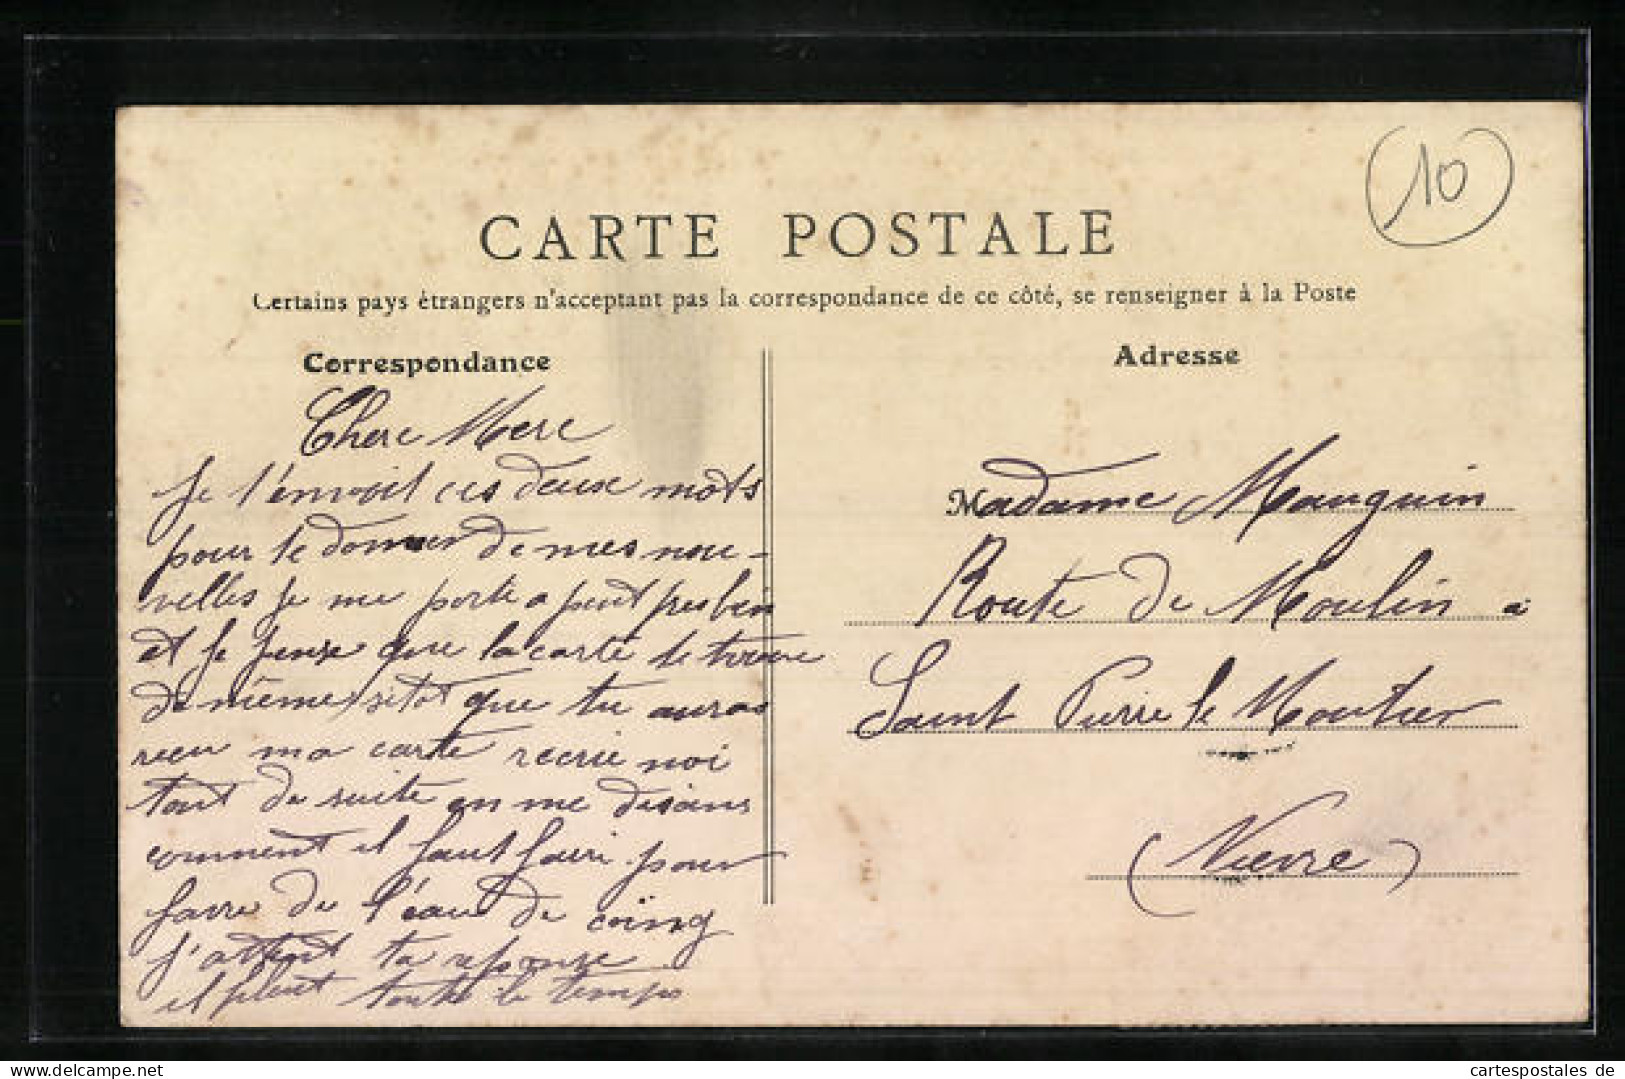 10
CARTE POSTALE
Certains pays étrangers n'acceptant pas la correspondance de ce côté, se renseigner à la Poste
Correspondance
Chere Mere
Je t'envoit ces deux mots
pour te donner de mes nou-
velles je me porte a peut pres bien
et je pense que la carte te trouve
de même sitot que tu auras
recu ma carte recrie moi
tout de suite en me disans
comment il faut faire pour
faire de l'eau de coing
j'attent ta reponse
il pleut toute le temps
Adresse
Madame Mauguin
Route de Moulin a
Saint Pierre le Moutier
(Nievre)
cartespostales de